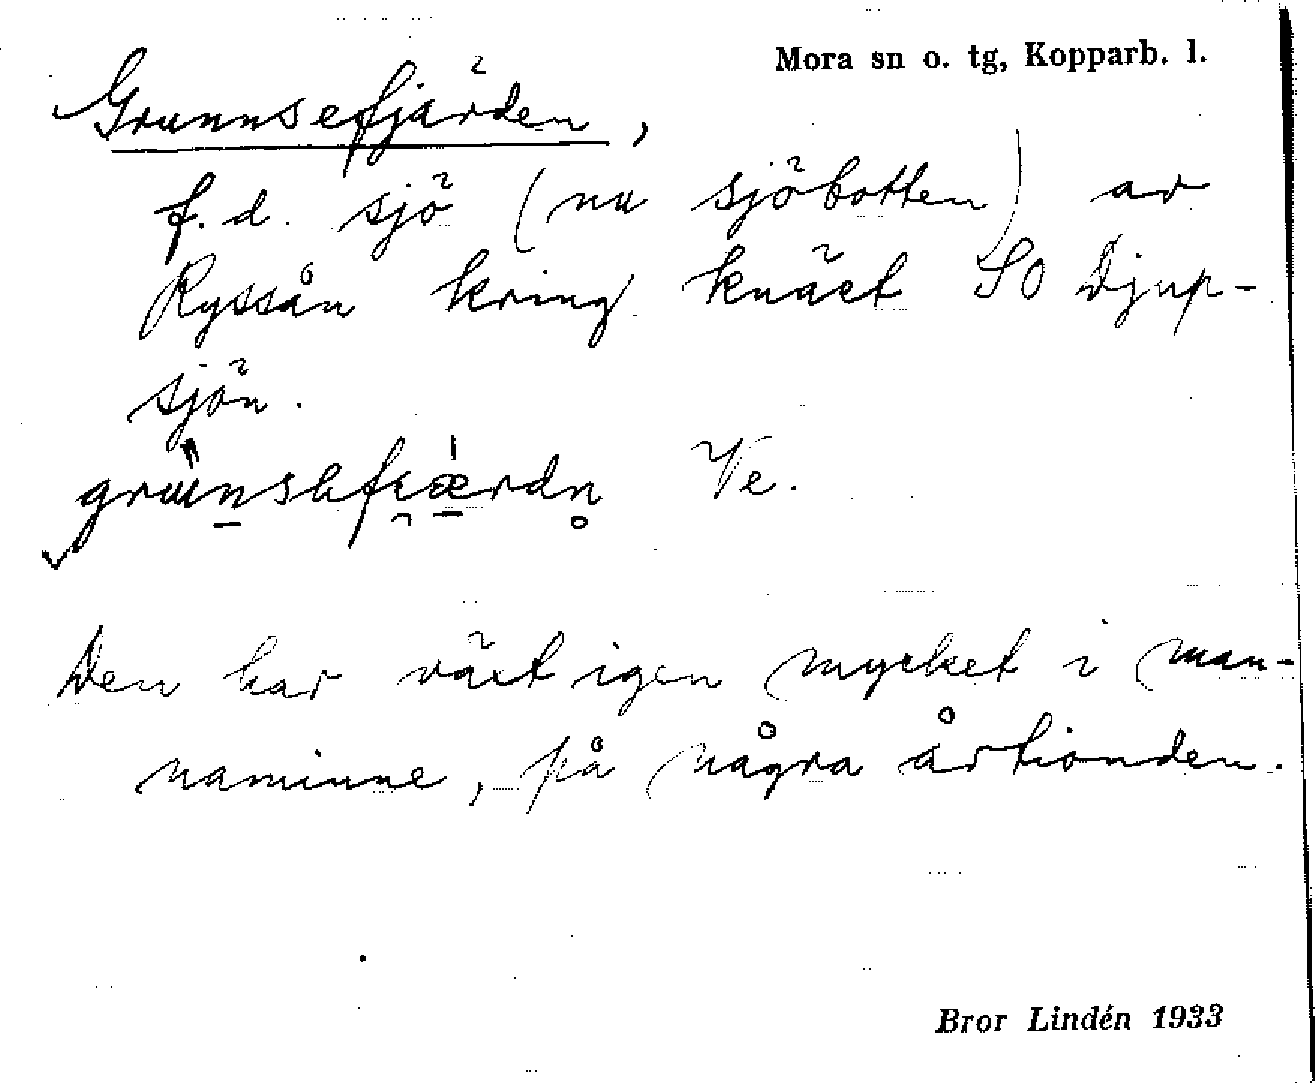 Mora sn o. tg, Kopparb. l.
Grunnsefjärden,
f.d. sjö (nu sjöbotten) av
Ryssån kring knäet SO Djup-
sjön.
Ve.
Den har växt igen mycket i man-
naminne, på några årtionden.
Bror Lindén 1933